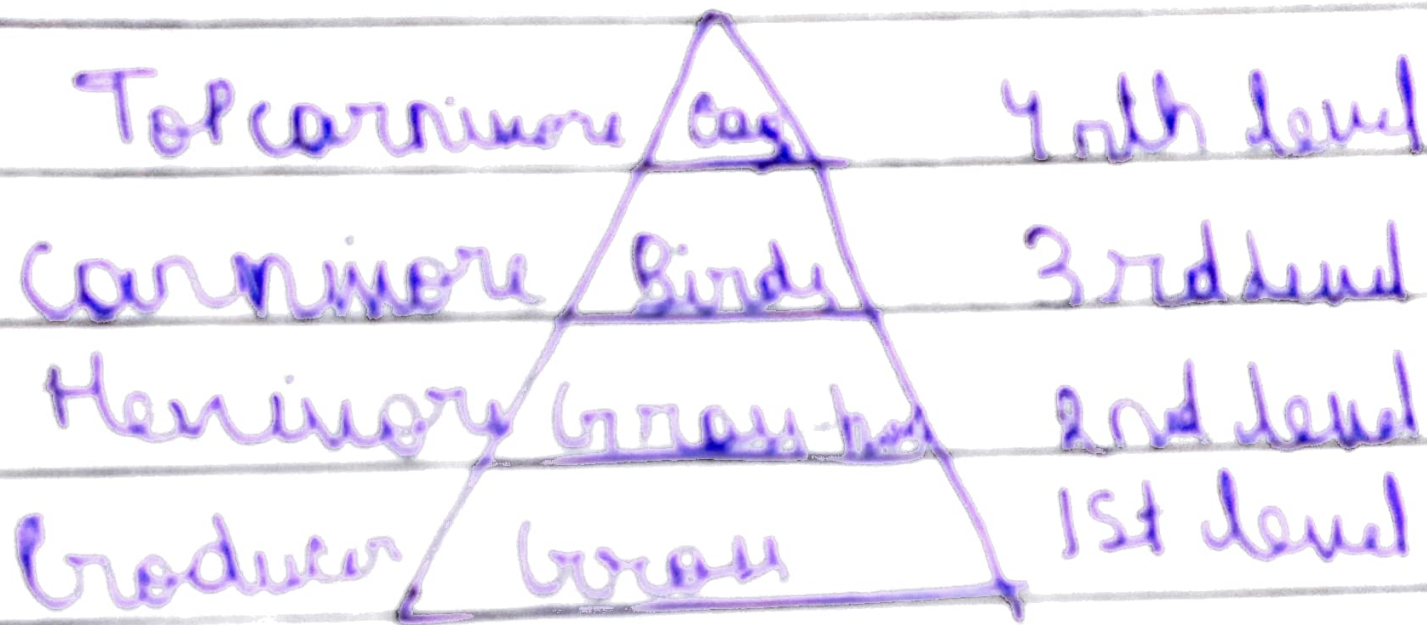 Topcarnivore 4rth level
Carnivore Birds 3rd level
Grass-hop 2nd level
Producer Grass 1st level